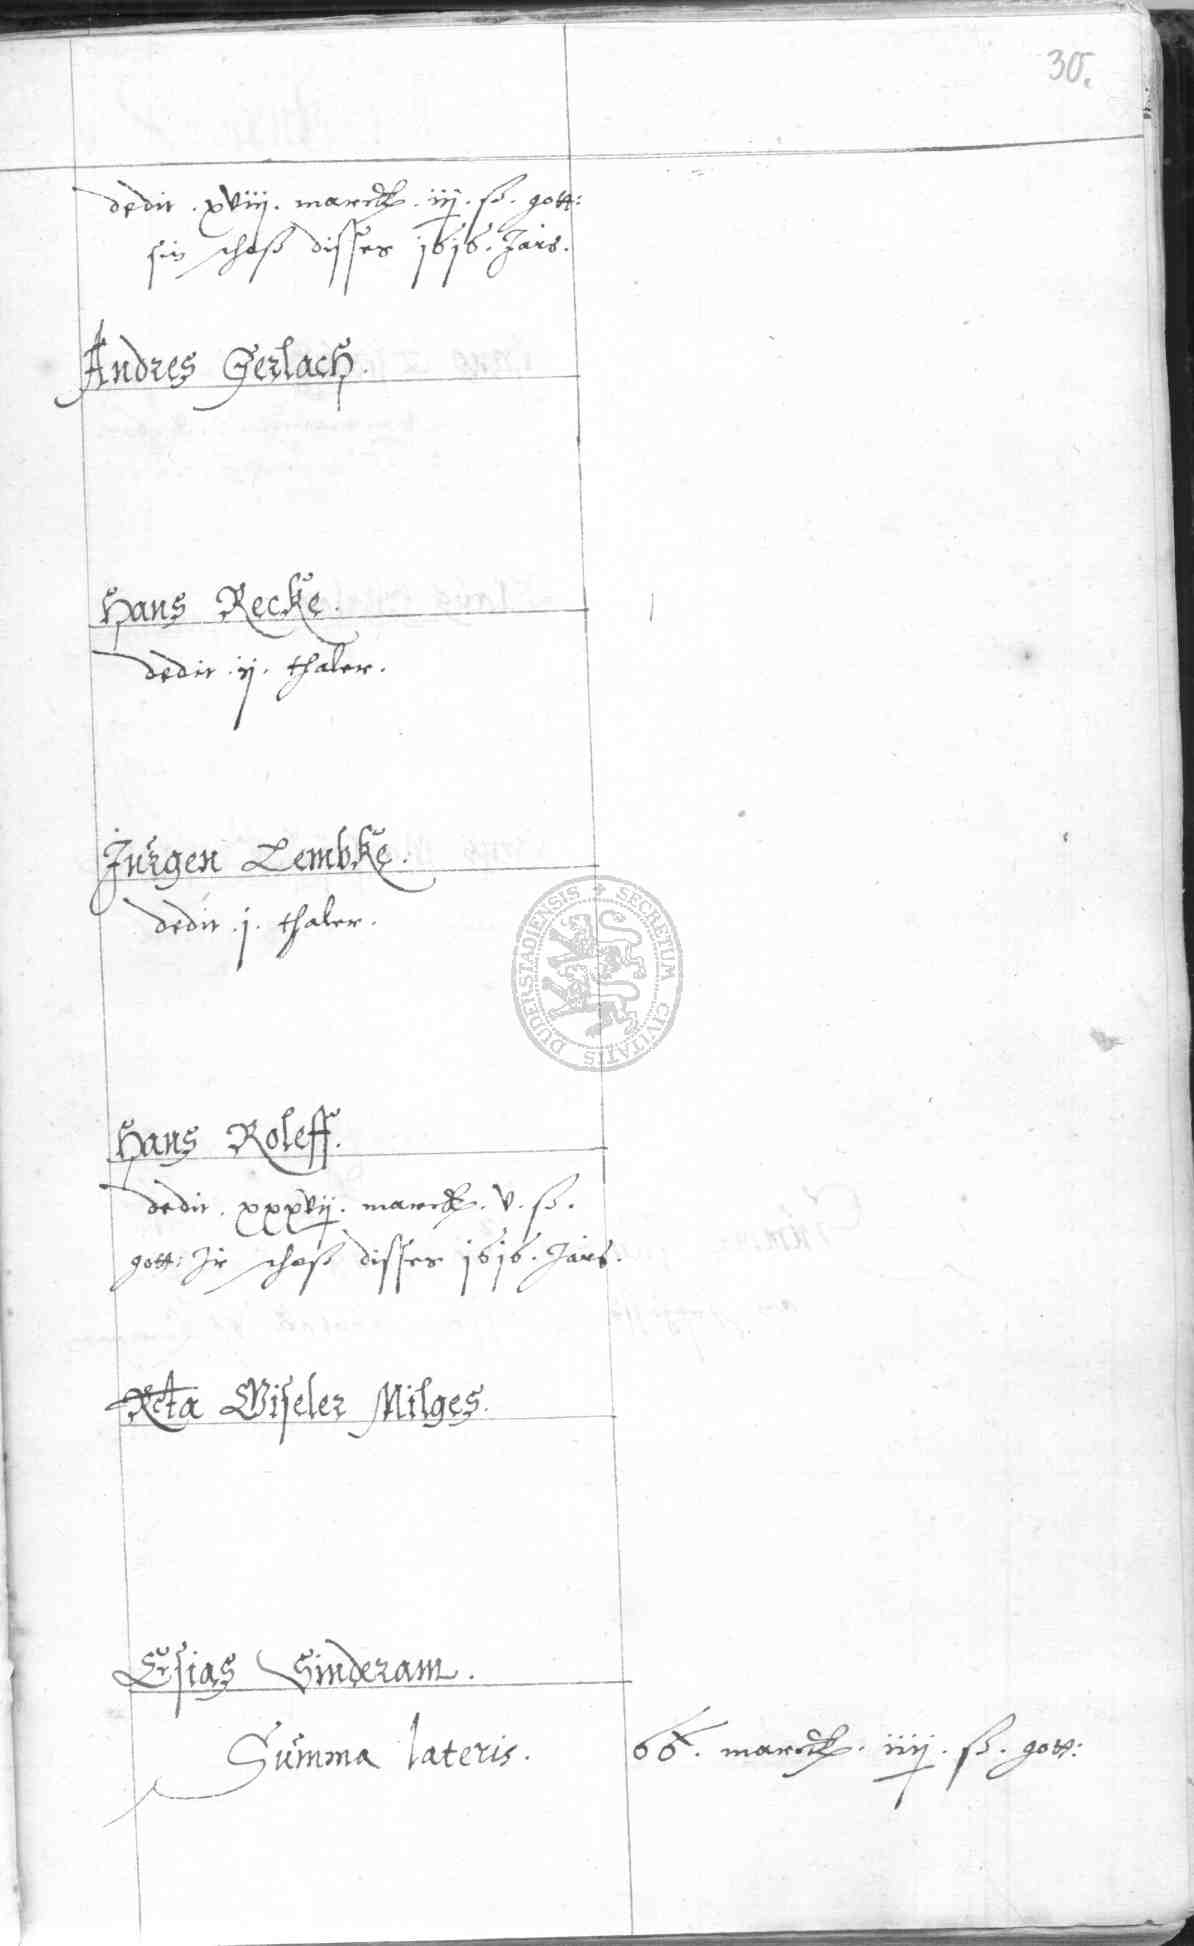 30.
dedit . xviij . marck . iij . ß . gott:
sin schoß disses 1616. Jars.
Andres Gerlach.
Hans Recke.
dedit . ij . thaler.
Jurgen Lembke.
dedit . j . thaler.
SECRETUM CIVITATIS DUDERSTADIENSIS
Hans Roleff.
dedit . xxxvij . marck . v . ß .
gott: Jr schoß disses 1616. Jars.
Wiseler Milges.
Esias Sinderam.
Summa lateris. 66. marck . iiij . ß . gott: